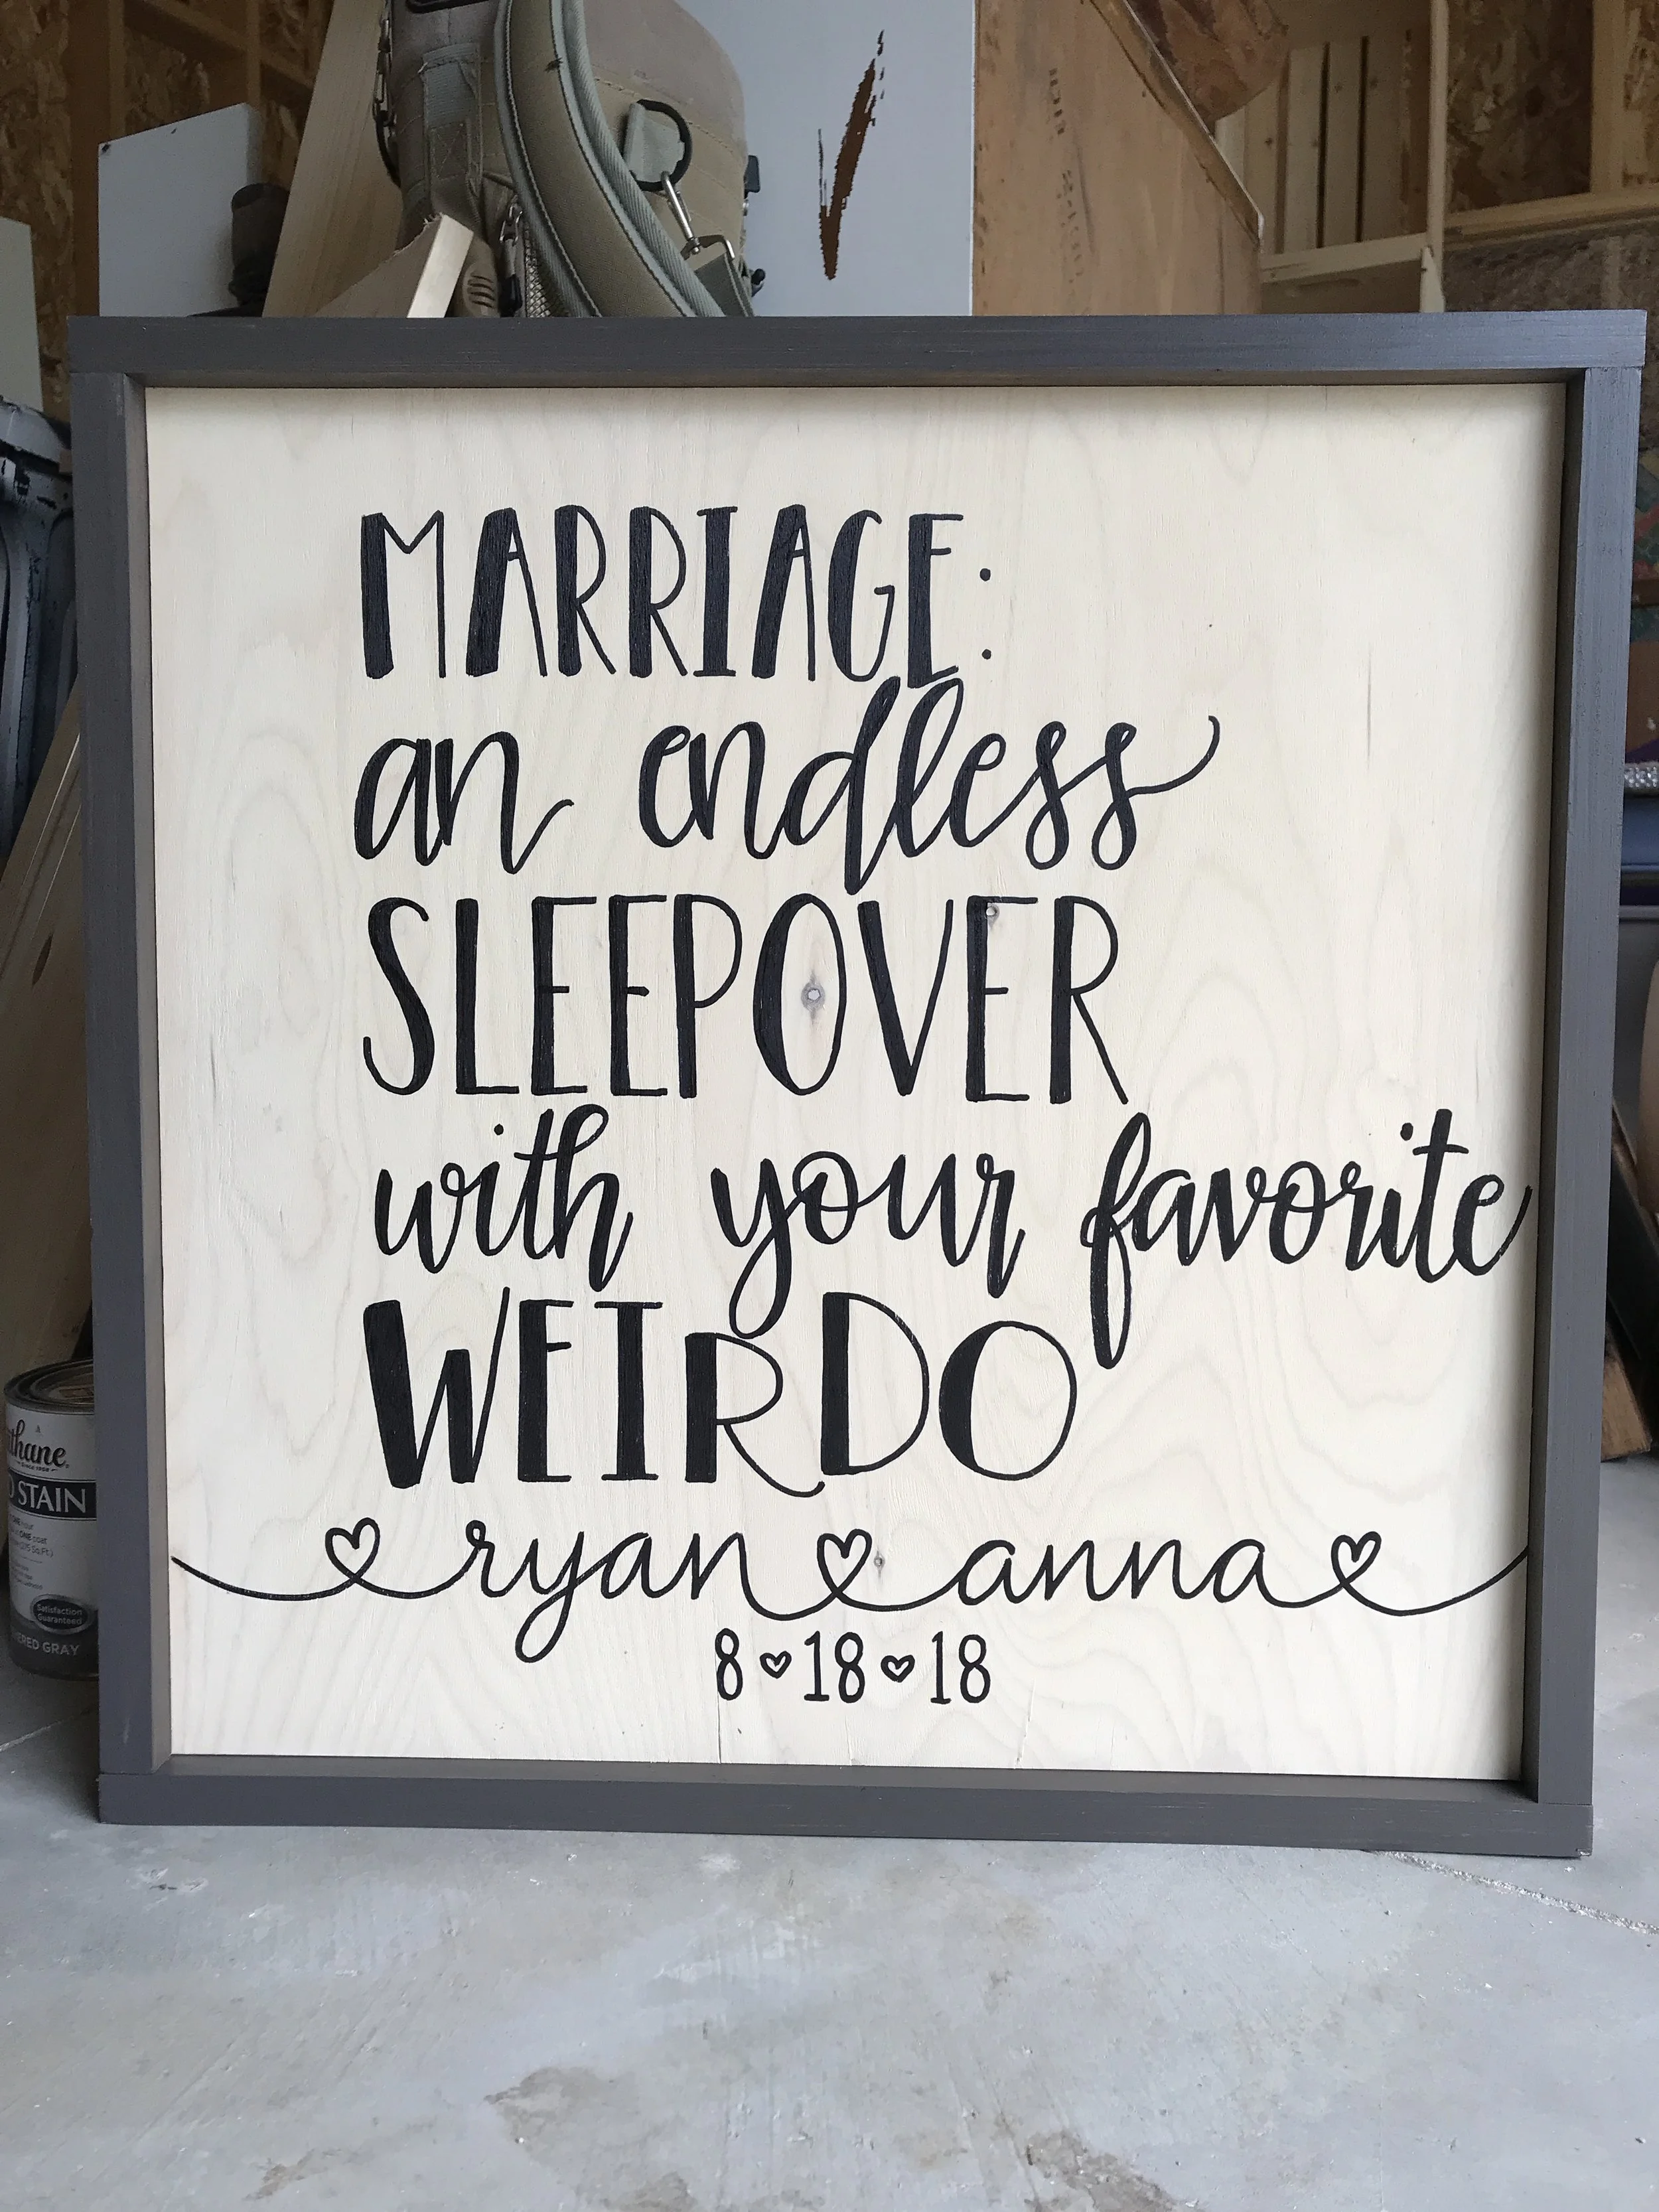 MARRIAGE:
an endless
SLEEPOVER
with your favorite
WEIRDO
ryan anna
8 ♡ 18 ♡ 18
STAIN
Satisfaction
Guaranteed
GRAY